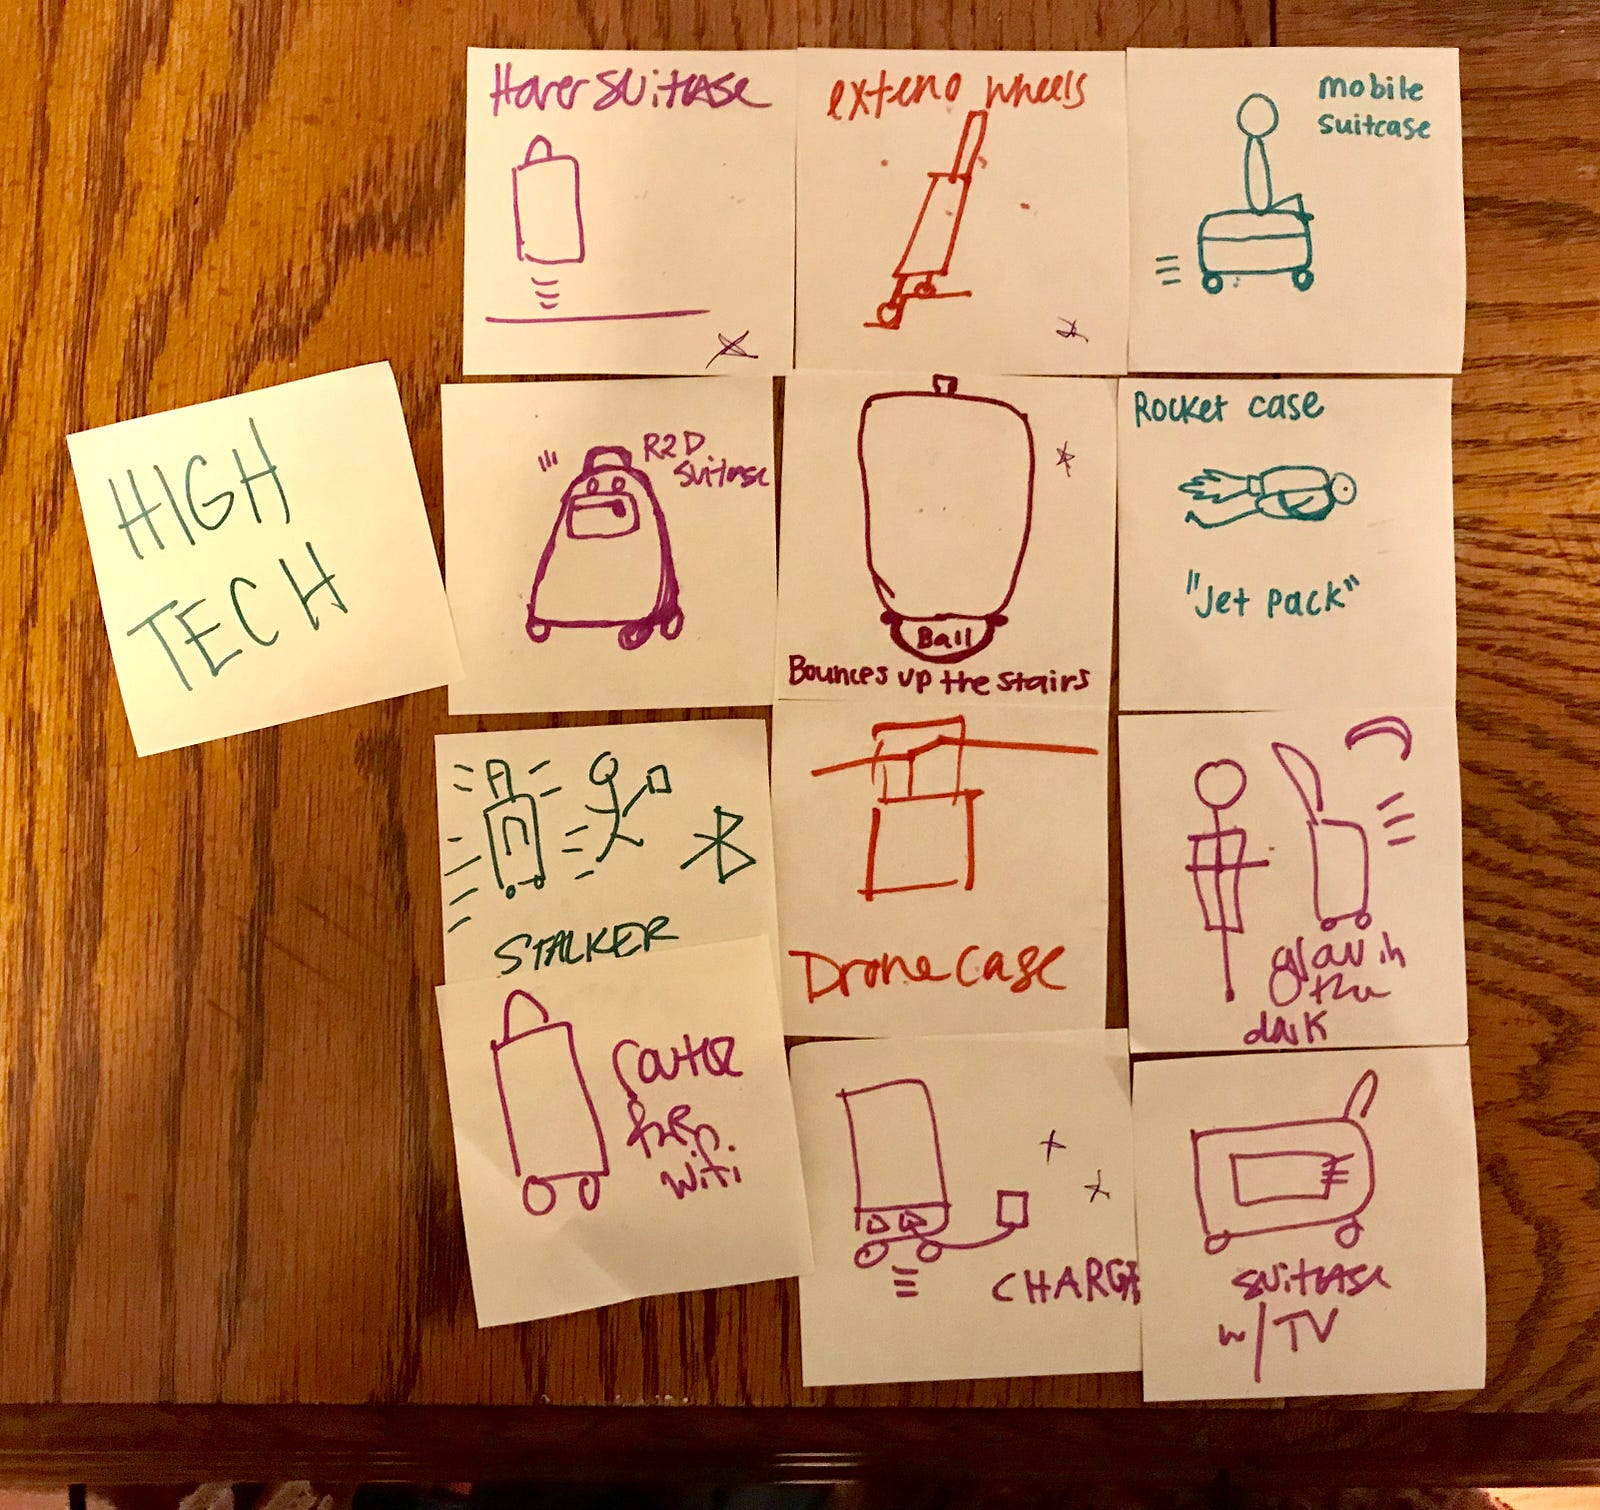 HIGH
TECH
Hover Suitcase
extend wheels
mobile
suitcase
R2D
suitcase
Ball
Bounces up the stairs
Rocket case
"Jet pack"
STALKER
Drone case
glow in
the
dark
router
wifi
CHARGE
suitcase
w/TV